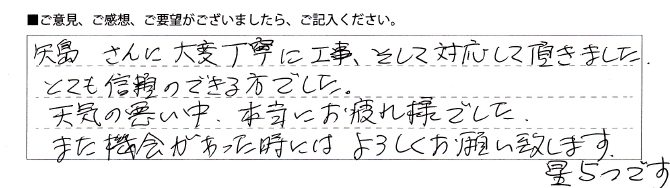 ■ご意見、ご感想、ご要望がございましたら、ご記入ください。
矢島 さんに大変丁寧に工事、そして対応して頂きました.
とても信頼のできる方でした。
天気の悪い中、本当にお疲れ様でした.
また機会があった時には よろしくお願い致します.
星5つです